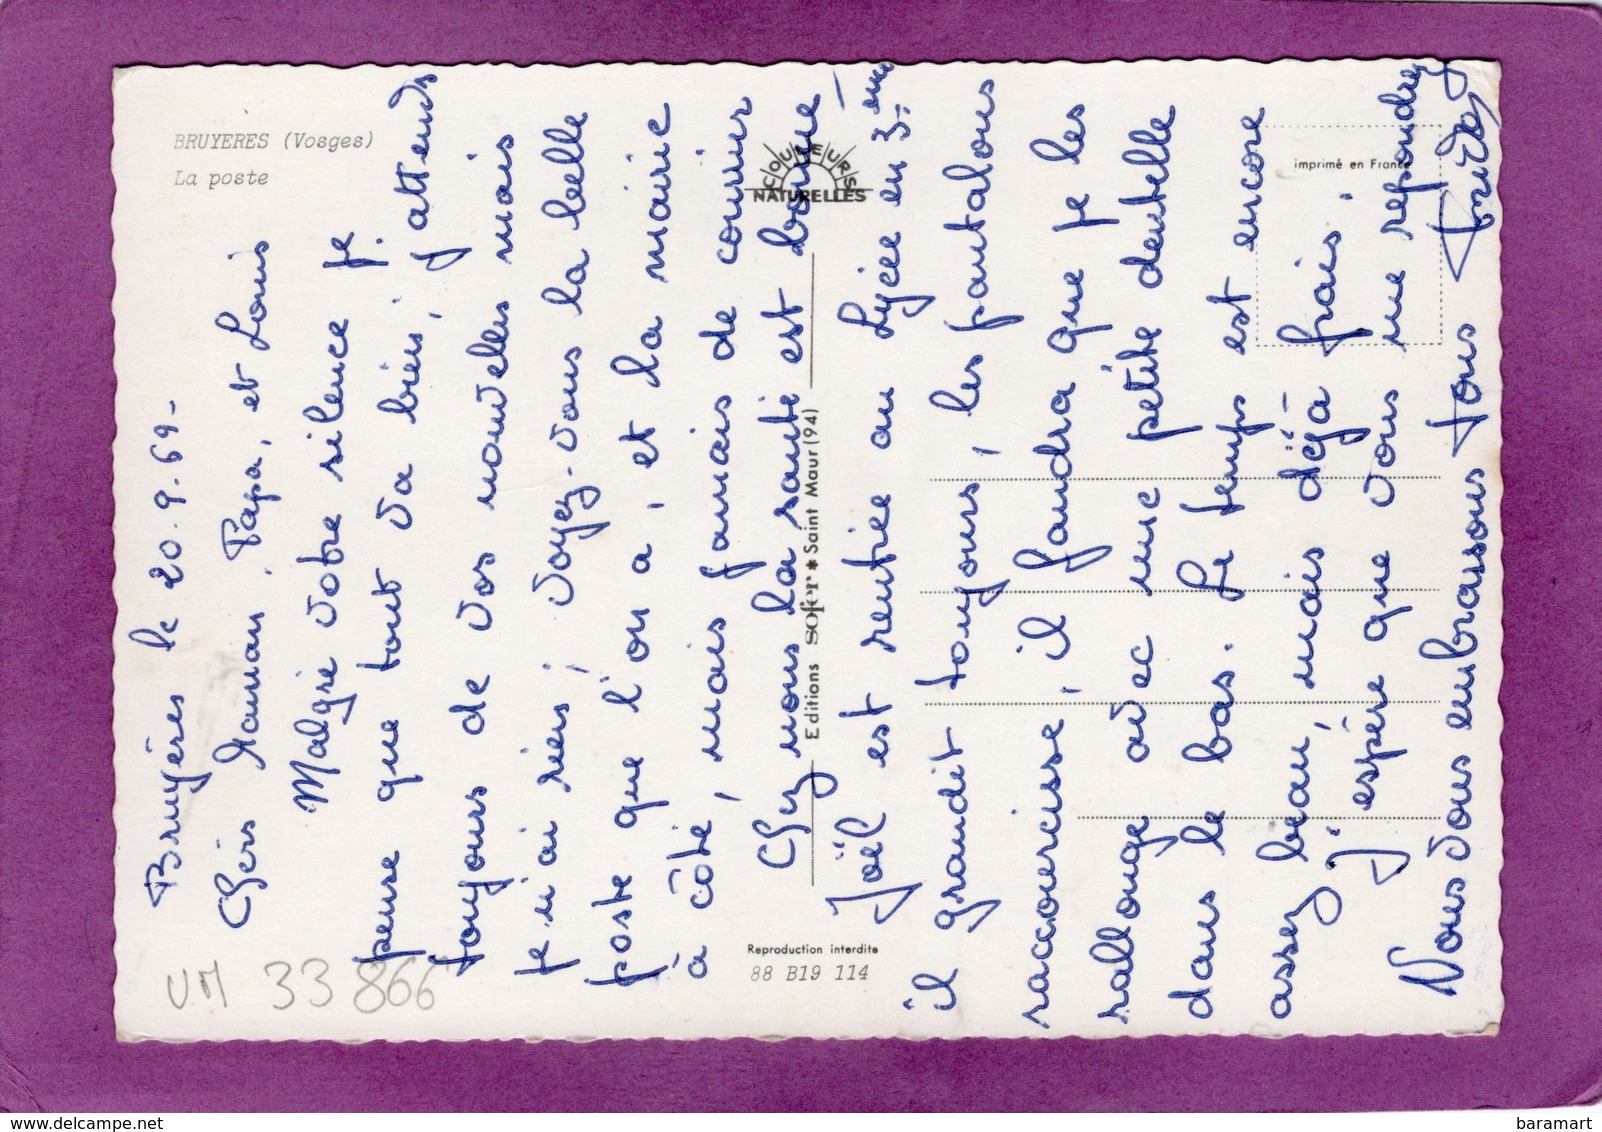 BRUYERES (Vosges)
La poste
COULEURS
NATURELLES
imprimé en France
Editions sofer * Saint Maur (94)
Reproduction interdite
88 B19 114
VM 33 866
Bruyères le 20.9.69-
Chers Maman, Papa, et Louis
Malgré votre silence je
pense que tout va bien, j'attends
toujours de vos nouvelles mais
je n'ai rien; voyez-vous la belle
poste que l'on a, et la mairie
à côté, mais jamais de courrier
Chez nous la santé est bonne
Joël est rentrée au Lycée en 3-eme
il grandit toujours, les pantalons
raccourcisse, il faudra que je les
rallonge avec une petite dentelle
dans le bas. Le temps est encore
assez beau, mais déjà frais.
J'espère que vous me repondrez
Nous vous embrassons tous
baramart
https://www.delcampe.net